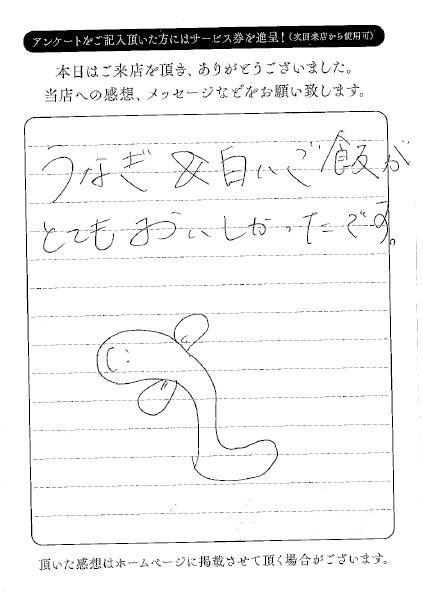 アンケートをご記入頂いた方にはサービス券を進呈！（次回来店から使用可）
本日はご来店を頂き、ありがとうございました。
当店への感想、メッセージなどをお願い致します。
うなぎ & 白いご飯が
とてもおいしかったです。
頂いた感想はホームページに掲載させて頂く場合がございます。